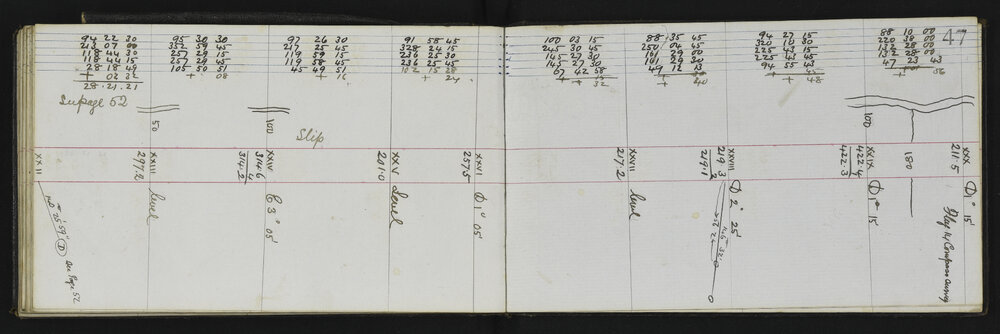 47
94 22 30
213 07 00
118 44 30
118 44 15
28 18 49
+ 02 32
28.21.21
95 30 30
352 59 45
257 29 15
257 29 45
105 50 51
+ 08
97 26 30
217 25 45
119 59 15
119 58 45
45 49 51
+ 16
91 58 45
328 24 15
236 25 30
236 25 45
102 15 28
+ 24
100 03 15
245 30 45
145 27 30
145 27 30
67 42 58
+ 32
88 35 45
250 04 45
161 29 00
161 29 30
49 12 13
+ 40
94 27 15
320 10 30
225 43 15
225 43 45
94 55 43
+ 48
88 10 00
220 38 00
132 28 00
132 28 00
47 23 43
+ 56
See page 52
Slip
50
100
100
180
XXII
XXIII
297.2
Level
XXIV
314.6
4
314.2
E 3° 05'
XXV
201.0
Level
XXVI
257.5
D 1° 05'
XXVII
217.2
Level
XXVIII
219.3
2
219.1
D 2° 25'
XXIX
422.4
422.3
D 1° 15'
XXX
211.5
D 1° 15'
See Page 52